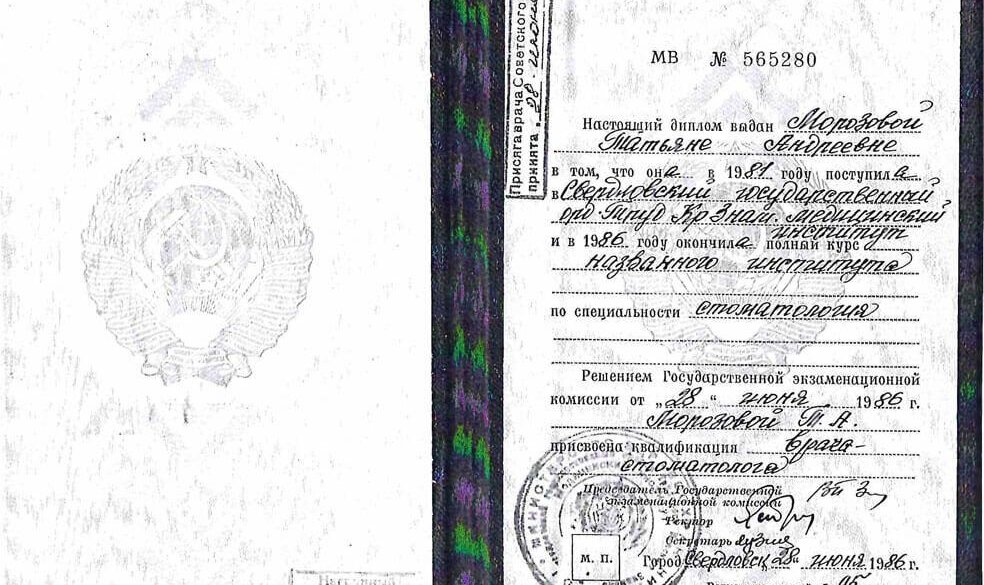 Присяга врача Советского
принята „28" июня
МВ № 565280
Настоящий диплом выдан Морозовой
Татьяне Андреевне
в том, что она в 1981 году поступила
в Свердловский государственный
орд. Труд. Кр. Знам. медицинский
институт
и в 1986 году окончила полный курс
названного института
по специальности стоматология
Решением Государственной экзаменационной
комиссии от „28" июня 1986 г.
Морозовой Т. А.
присвоена квалификация врача-
стоматолога
Председатель Государственной
экзаменационной комиссии
Ректор
Секретарь
М. П.
Город Свердловск 28" июня 1986 г.